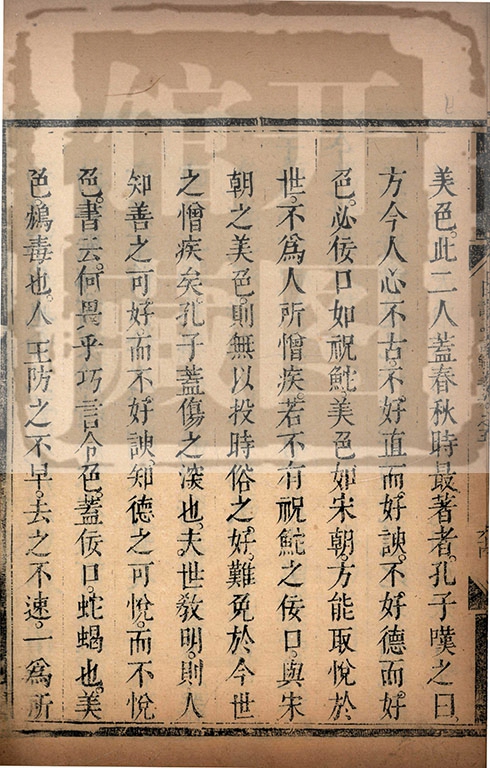 美色。此二人蓋春秋時最著者。孔子嘆之曰。
方今人心不古。不好直而好諛。不好德而好
色。必佞口如祝鮀。美色如宋朝。方能取悅於
世。不為人所憎疾。若不有祝鮀之佞口。與宋
朝之美色。則無以投時俗之好。難免於今世
之憎疾矣。孔子蓋傷之深也。夫世教明。則人
知善之可好。而不好諛。知德之可悅。而不悅
色。書云。何畏乎巧言令色。蓋佞口。蛇蝎也。美
色。鴆毒也。人主防之不早。去之不速。一為所